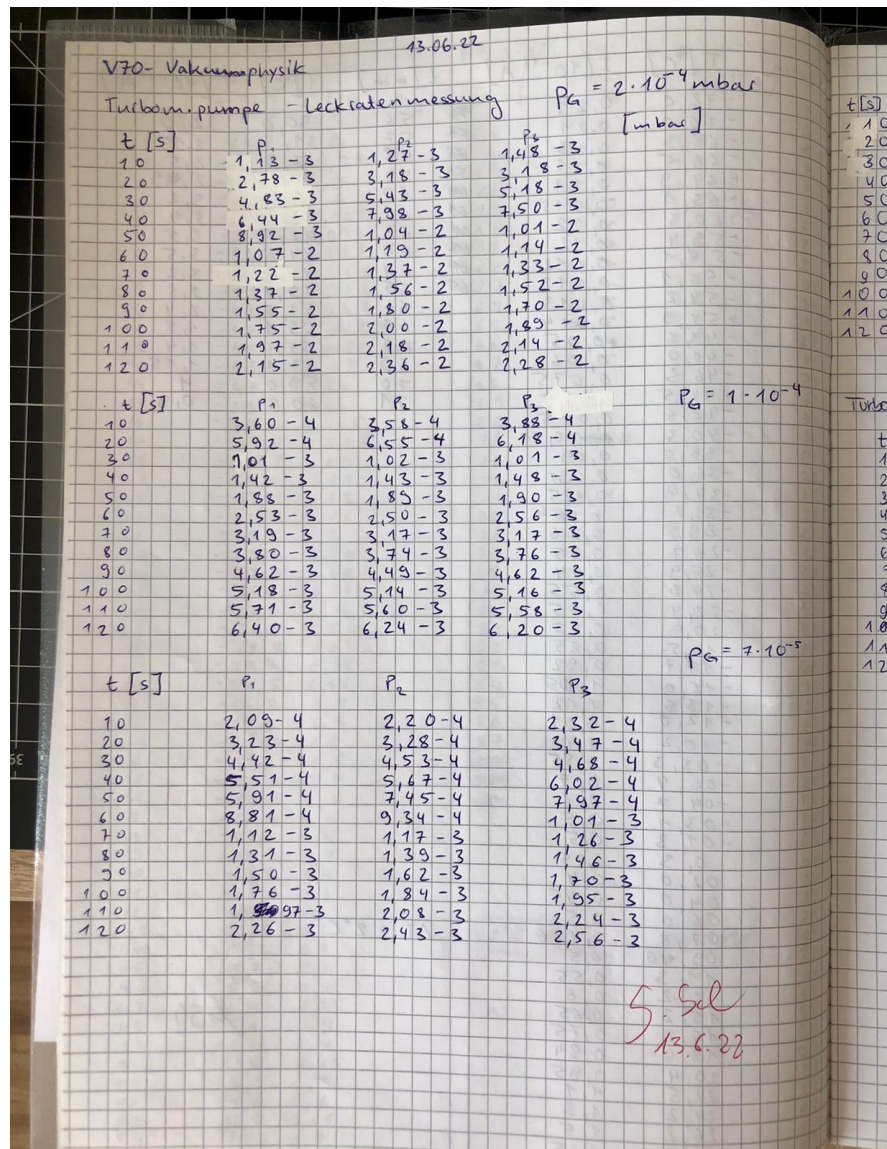 13.06.22
V70- Vakuumphysik
Turbom.pumpe - Leckratenmessung PG = 2·10⁻⁴ mbar
[mbar]
t [s] P1 P2 P3
10 1,13-3 1,27-3 1,48-3
20 2,78-3 3,18-3 3,18-3
30 4,83-3 5,43-3 5,18-3
40 6,44-3 7,98-3 7,50-3
50 8,92-3 1,04-2 1,01-2
60 1,07-2 1,19-2 1,14-2
70 1,22-2 1,37-2 1,33-2
80 1,37-2 1,56-2 1,52-2
90 1,55-2 1,80-2 1,70-2
100 1,75-2 2,00-2 1,89-2
110 1,97-2 2,18-2 2,14-2
120 2,15-2 2,36-2 2,28-2
t [s] P1 P2 P3 PG = 1·10⁻⁴
10 3,60-4 3,58-4 3,88-4
20 5,92-4 6,55-4 6,18-4
30 1,01-3 1,02-3 1,01-3
40 1,42-3 1,43-3 1,48-3
50 1,88-3 1,89-3 1,90-3
60 2,53-3 2,50-3 2,56-3
70 3,19-3 3,17-3 3,17-3
80 3,80-3 3,74-3 3,76-3
90 4,62-3 4,49-3 4,62-3
100 5,18-3 5,14-3 5,16-3
110 5,71-3 5,60-3 5,58-3
120 6,40-3 6,24-3 6,20-3
PG = 7·10⁻⁵
t [s] P1 P2 P3
10 2,09-4 2,20-4 2,32-4
20 3,23-4 3,28-4 3,47-4
30 4,42-4 4,53-4 4,68-4
40 5,51-4 5,67-4 6,02-4
50 5,91-4 7,45-4 7,97-4
60 8,81-4 9,34-4 1,01-3
70 1,12-3 1,17-3 1,26-3
80 1,31-3 1,39-3 1,46-3
90 1,50-3 1,62-3 1,70-3
100 1,76-3 1,84-3 1,95-3
110 1,97-3 2,08-3 2,24-3
120 2,26-3 2,43-3 2,56-3
13.6.22
t[s]
10
20
30
40
50
60
70
80
90
100
110
120
Turbo
t
1
2
3
4
5
6
7
8
9
10
11
12